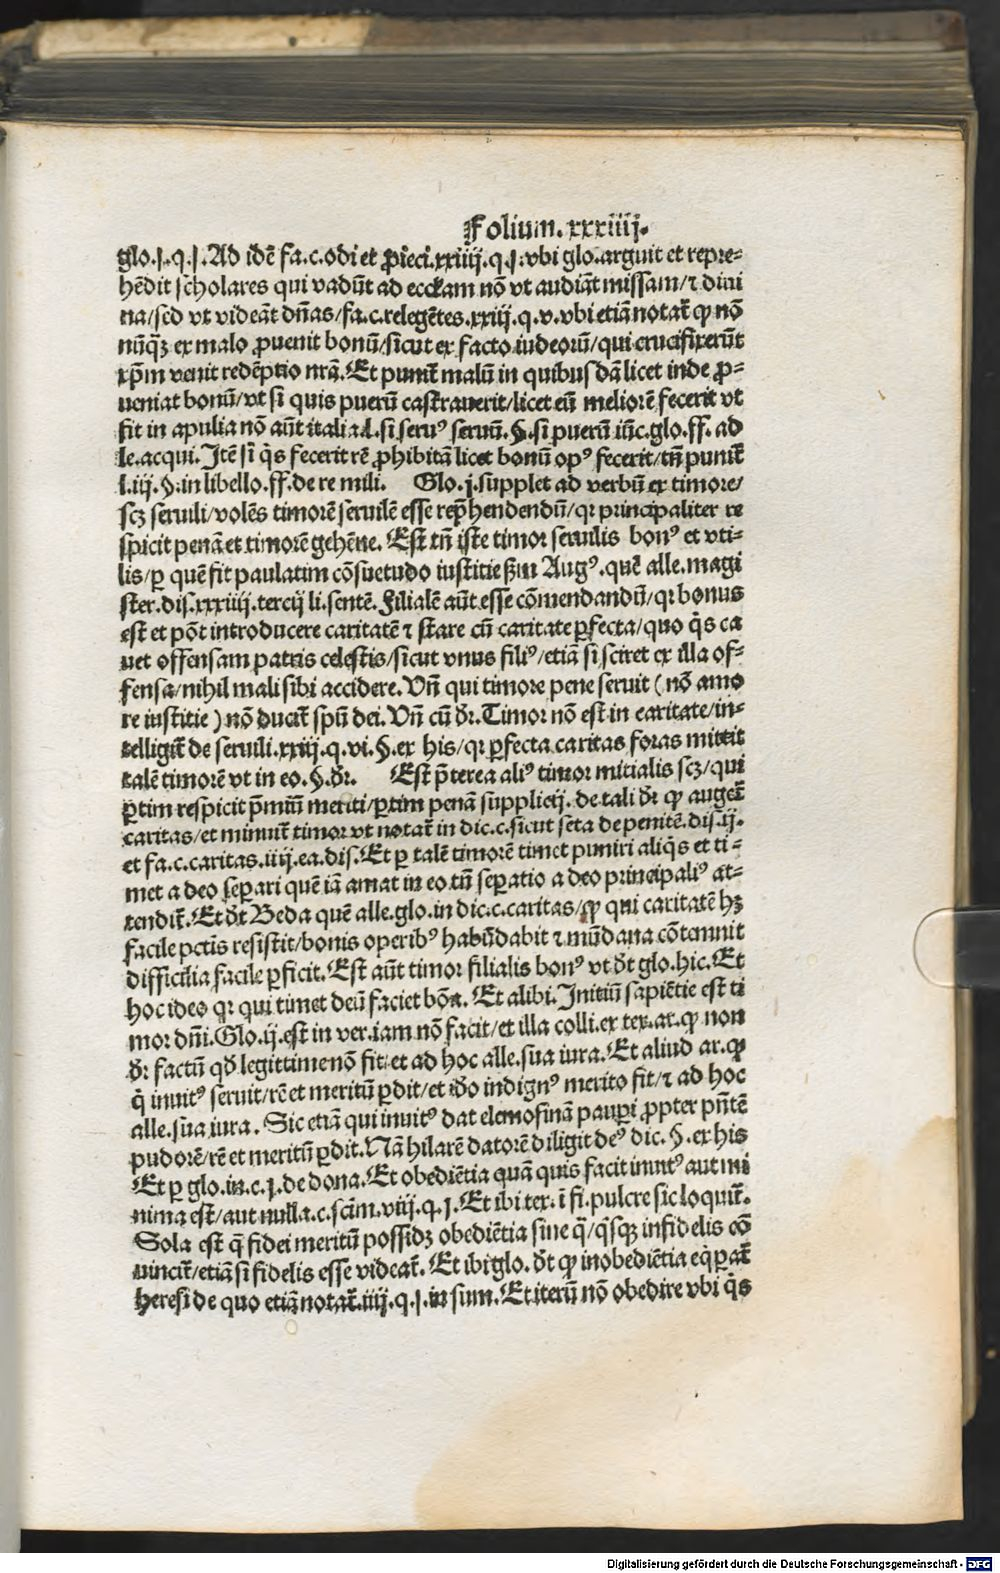 Folium.xxxiiij.
glo.j.q.j. Ad idē fa.c.odi et ꝓieci.xxiiij.q.j.vbi glo.arguit et repre⸗
hēdit scholares qui vadūt ad ecclam nō vt audiāt missam/⁊ diui
na/sed vt videāt dn̄as/fa.c.relegētes.xxiij.q.v.vbi etiā notat̄ ꝙ nō
nūqꝫ ex malo ꝓuenit bonū/sicut ex facto iudeorū/qui crucifixerūt
xp̄m venit redēptio nr̄a. Et punit̄ malū in quibusdā licet inde ꝓ⸗
ueniat bonū/vt si quis puerū castrauerit/licet eū meliorē fecerit vt
fit in apulia nō aūt italia.l.si seruꝰ seruū.§.si puerū iūc.glo.ff. ad
le.acqui. Itē si q̄s fecerit rē ꝓhibitā licet bonū opꝰ fecerit/tn̄ punit̄
l.iij.§.in libello.ff.de re mili. Glo.j.supplet ad verbū ex timore/
scꝫ seruili/volēs timorē seruilē esse rep̄hendendū/qꝛ principaliter re
spicit penā et timorē gehēne. Est tn̄ iste timor seruilis bonꝰ et vti⸗
lis/ꝑ quē fit paulatim cōsuetudo iustitie ẜm Augꝰ.quē alle.magi
ster.dis.xxxiiij.tercij li.sentē. Filialē aūt esse cōmendandū/qꝛ bonus
est et pōt introducere caritatē ⁊ stare cū caritate ꝑfecta/quo q̄s ca
uet offensam patris celestis/sicut vnus filiꝰ/etiā si sciret ex illa of⸗
fensa/nihil mali sibi accidere. Vn̄ qui timore pene seruit (nō amo
re iustitie) nō ducit̄ spū dei. Vn̄ cū dr̄. Timor nō est in caritate/in⸗
telligit̄ de seruili.xxiij.q.vi.§.ex his/qꝛ ꝑfecta caritas foras mittit
talē timorē vt in eo.§.dr̄. Est p̄terea aliꝰ timor initialis scꝫ/qui
ꝑtim respicit p̄miū meriti/ꝑtim penā supplicij. de tali dr̄ ꝙ auget̄
caritas/et minuit̄ timor vt notat̄ in dic.c.sicut seta de penitē.dis.ij.
et fa.c.caritas.iiij.ea.dis. Et ꝑ talē timorē timet puniri aliq̄s et ti⸗
met a deo seꝑari quē iā amat in eo.tn̄ seꝑatio a deo principaliꝰ at⸗
tendit̄. Et dt̄ Beda quē alle.glo.in dic.c.caritas/ꝙ qui caritatē hꝫ
facile pctis resistit/bonis operibꝰ habūdabit ⁊ mūdana cōtemnit
difficilia facile ꝑficit. Est aūt timor filialis bonꝰ vt dt̄ glo.hic. Et
hoc ideo qꝛ qui timet deū faciet bōa. Et alibi. Initiū sapiētie est ti
mor dn̄i. Glo.ij.est in ver.iam nō facit/et illa colli.ex tex.ar.ꝙ non
dr̄ factū qd̄ legittime nō fit/et ad hoc alle.sua iura. Et aliud ar.ꝙ
q̄ inuitꝰ seruit/rē et meritū ꝑdit/et iō indignꝰ merito fit/⁊ ad hoc
alle.sua iura. Sic etiā qui inuitꝰ dat elemosinā pauꝑi ꝓpter pn̄tē
pudorē/rē et meritū ꝑdit. Nā hilarē datorē diligit deꝰ dic.§.ex his
Et ꝑ glo.in.c.j.de dona. Et obediētia quā quis facit inuitꝰ aut mi
nima est/aut nulla.c.scīm.viij.q.j. Et ibi tex.ī fi.pulcre sic loquit̄.
Sola est q̄ fidei meritū possidꝫ obediētia sine q̄/q̄sqꝫ infidelis cō
uincit̄/etiā si fidelis esse videat̄. Et ibi glo. dt̄ ꝙ inobediētia eq̄ꝑat̄
heresi de quo etiā notat̄.iiij.q.j.in sum. Et iterū nō obedire vbi q̄s
Digitalisierung gefördert durch die Deutsche Forschungsgemeinschaft - DFG